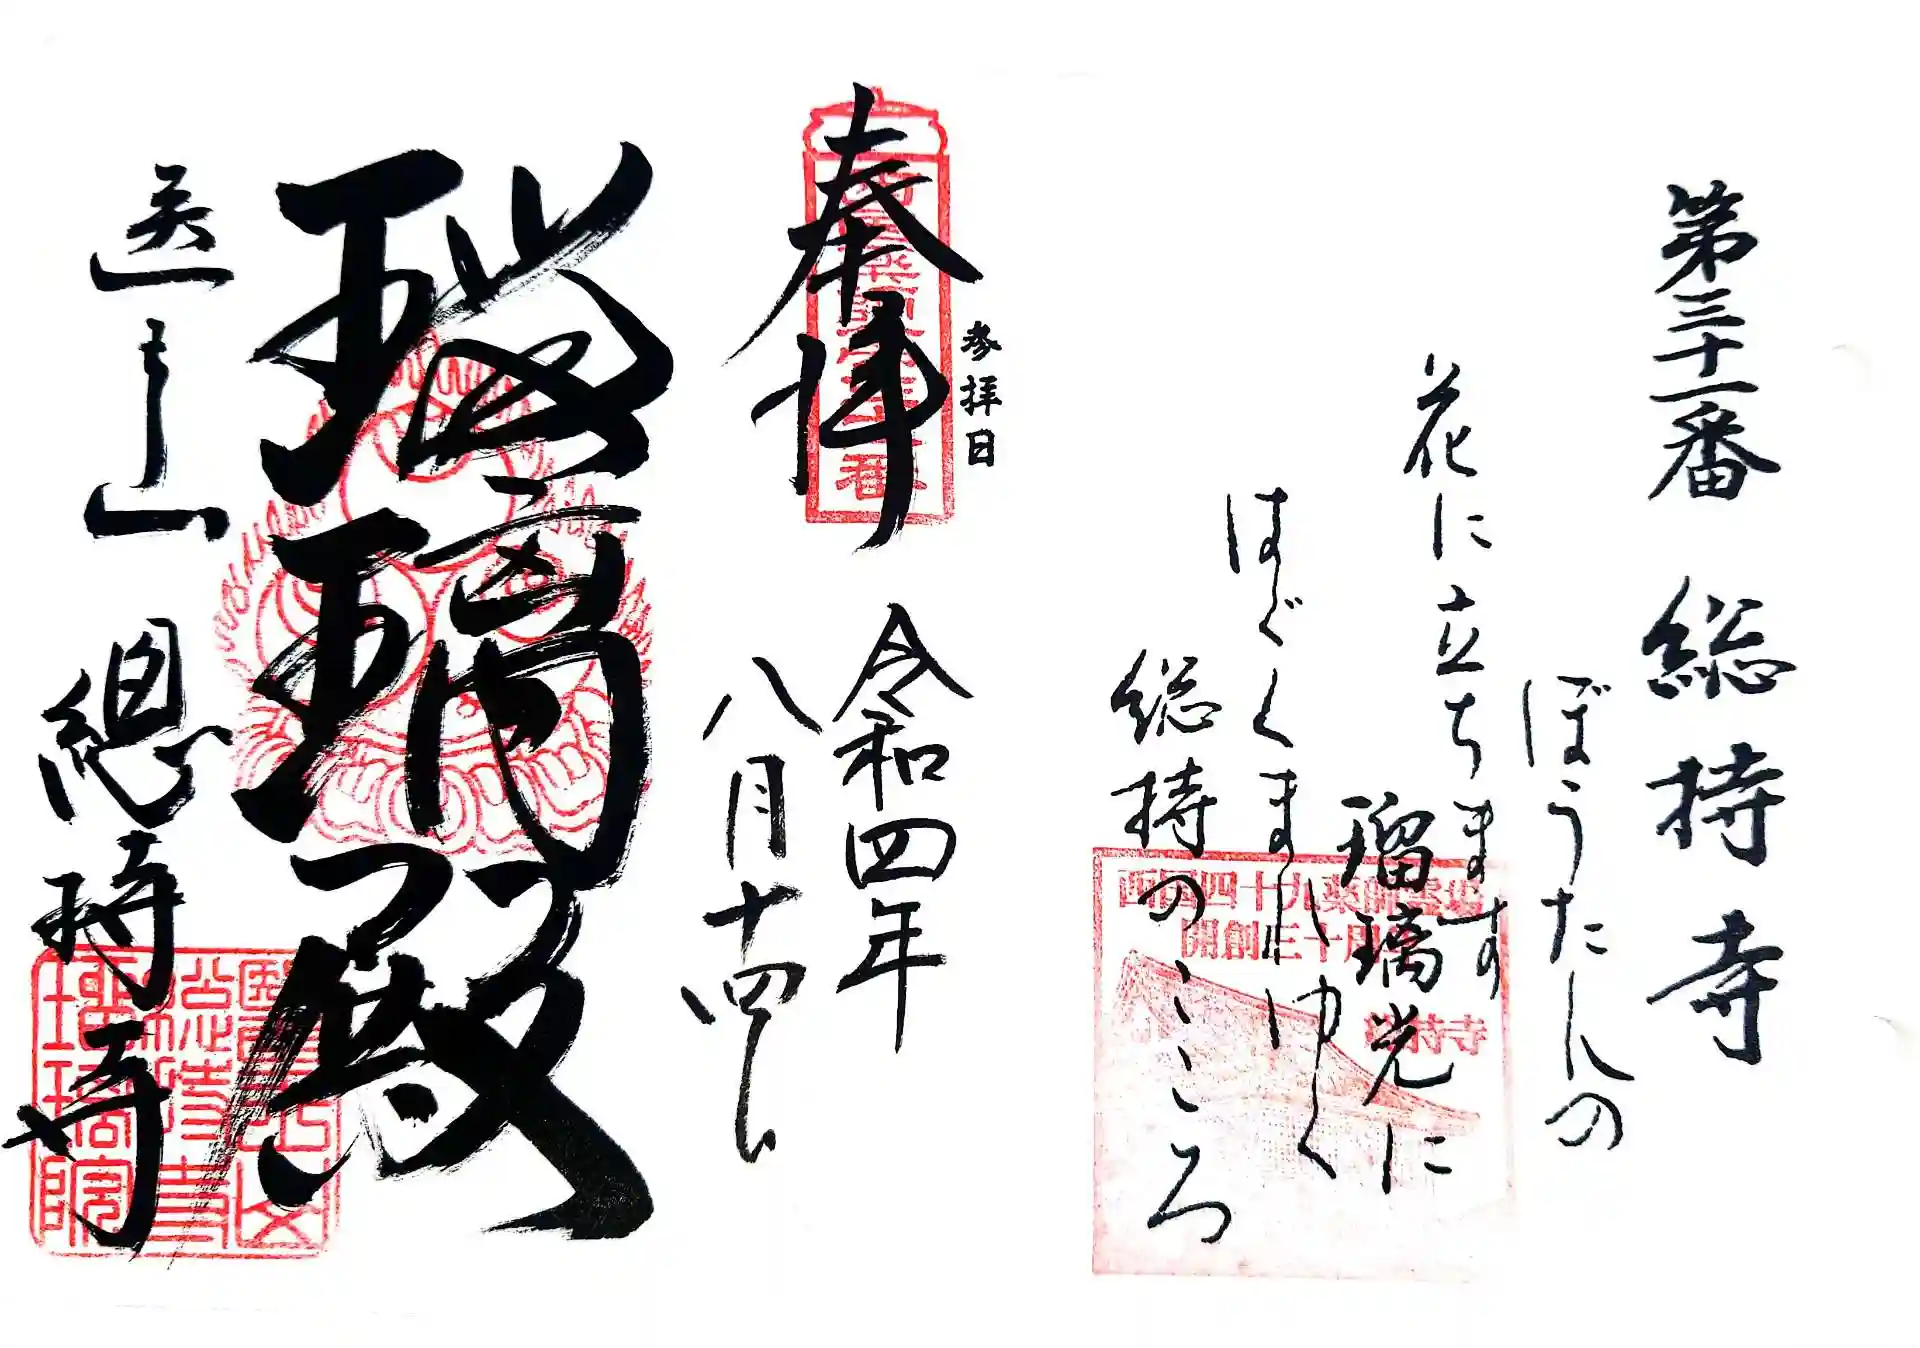 第三十一番 総持寺
ぼうたんの
花に立ちます
瑠璃光に
はぐくまれゆく
総持のこころ
西国四十九薬師霊場
開創三十周
総持寺
参拝日
奉拝
令和四年
八月十四日
瑠璃殿
医王山 總持寺
醫王山
總持寺
瑠璃院